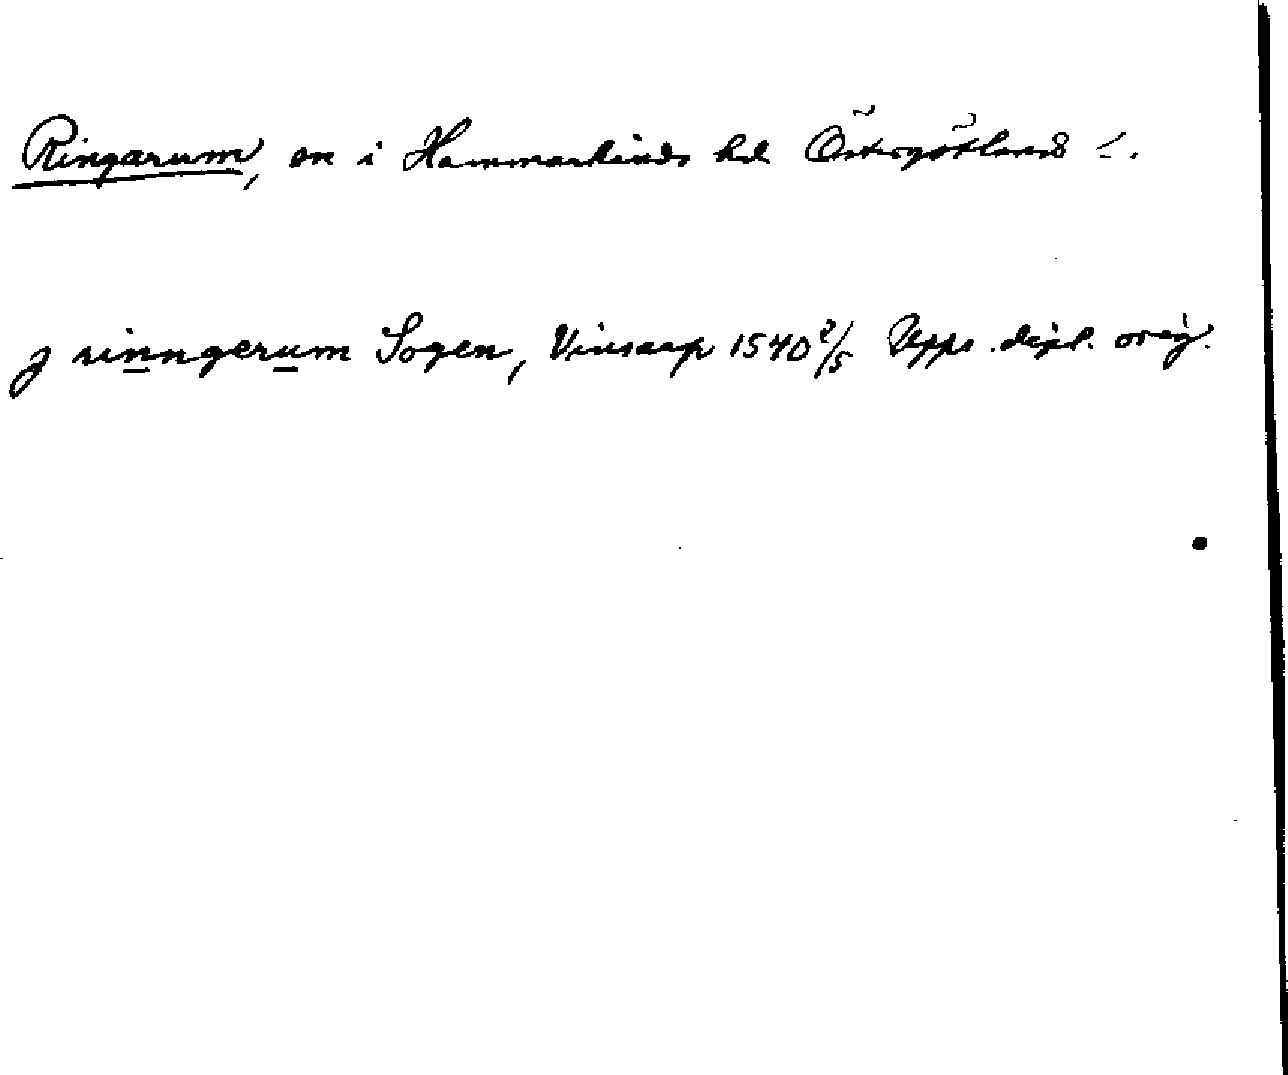 Ringarum, sn i Hammarkinds hd Östergötlands l.
j rinngerum Sogen, Vinsarp 1540 2/5 Upps. dipl. orig.